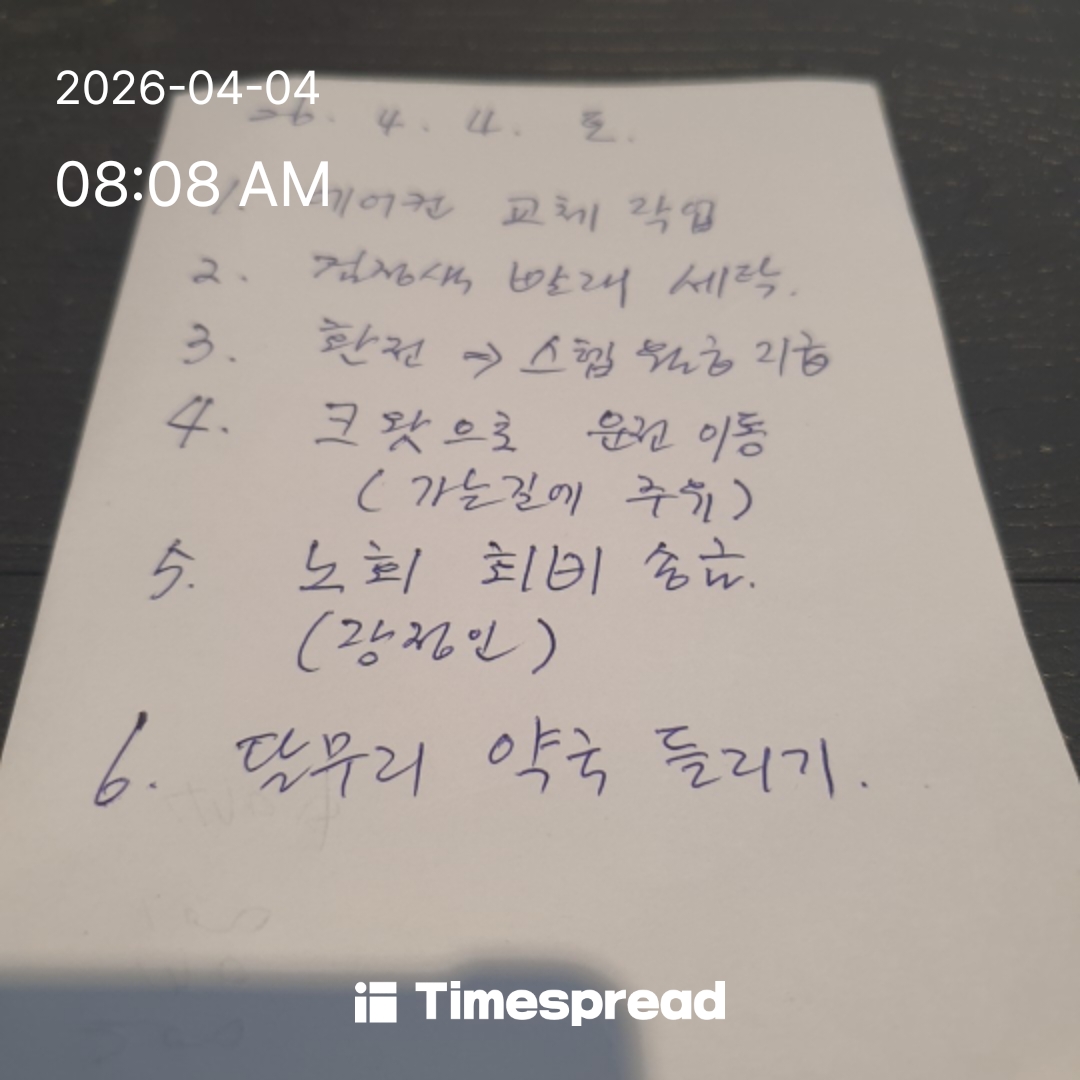 2026-04-04
26. 4. 4. 토.
08:08 AM
1. 에어컨 교체 작업
2. 검정색 빨래 세탁.
3. 환전 → 스텝 월급 지급
4. 크랏으로 운전 이동
(가는길에 주유)
5. 노회 회비 송금.
(강정인)
6. 달무리 약국 들리기.
Timespread